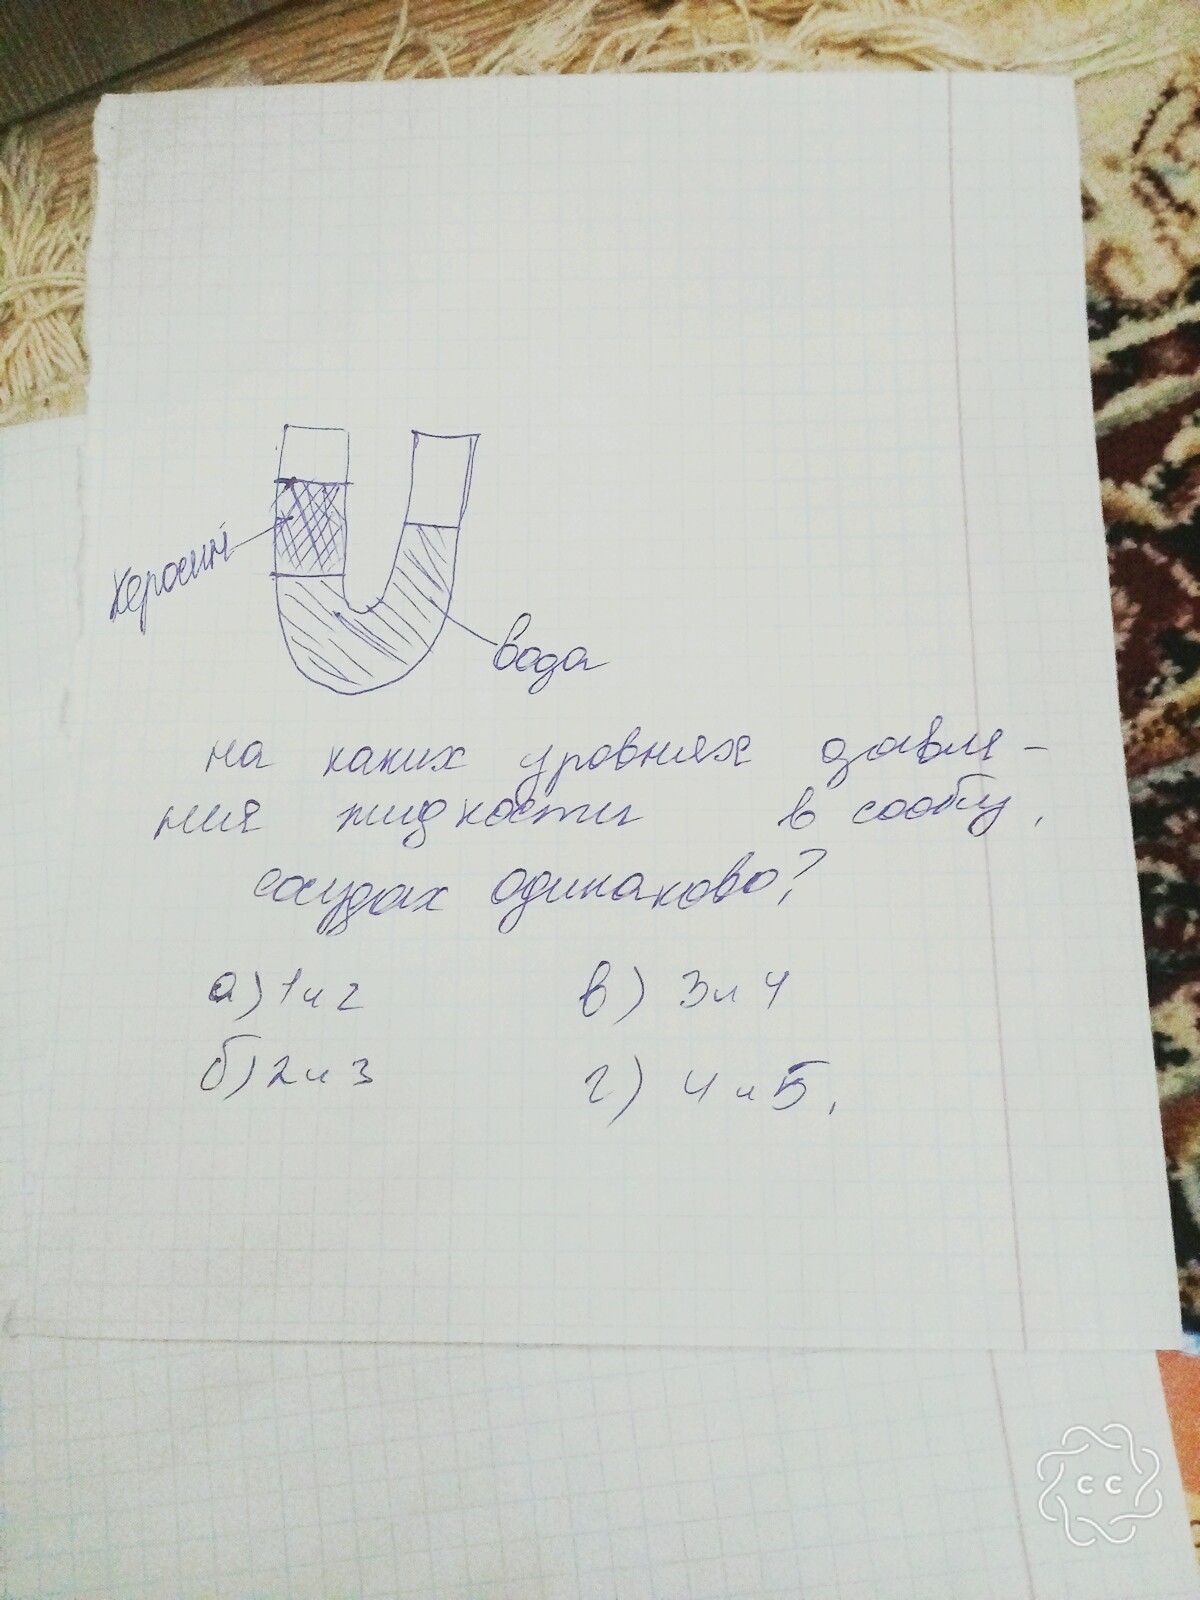 керосин
вода
на каких уровнях давле-
ния жидкости в сообщ.
сосудах одинаково?
а) 1 и 2 в) 3 и 4
б) 2 и 3 г) 4 и 5.
CC